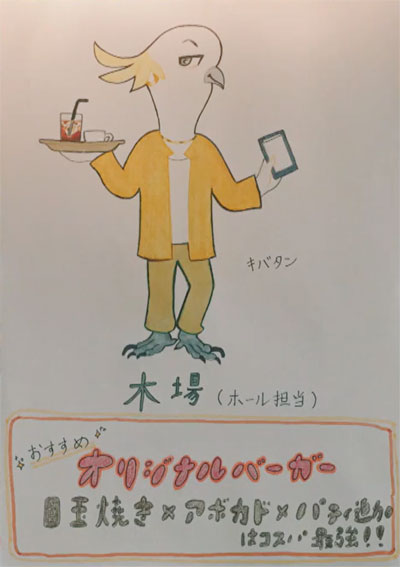 キバタン
木場（ホール担当）
おすすめ
オリジナルバーガー
目玉焼き×アボカド×パティ追加
はコスパ最強!!